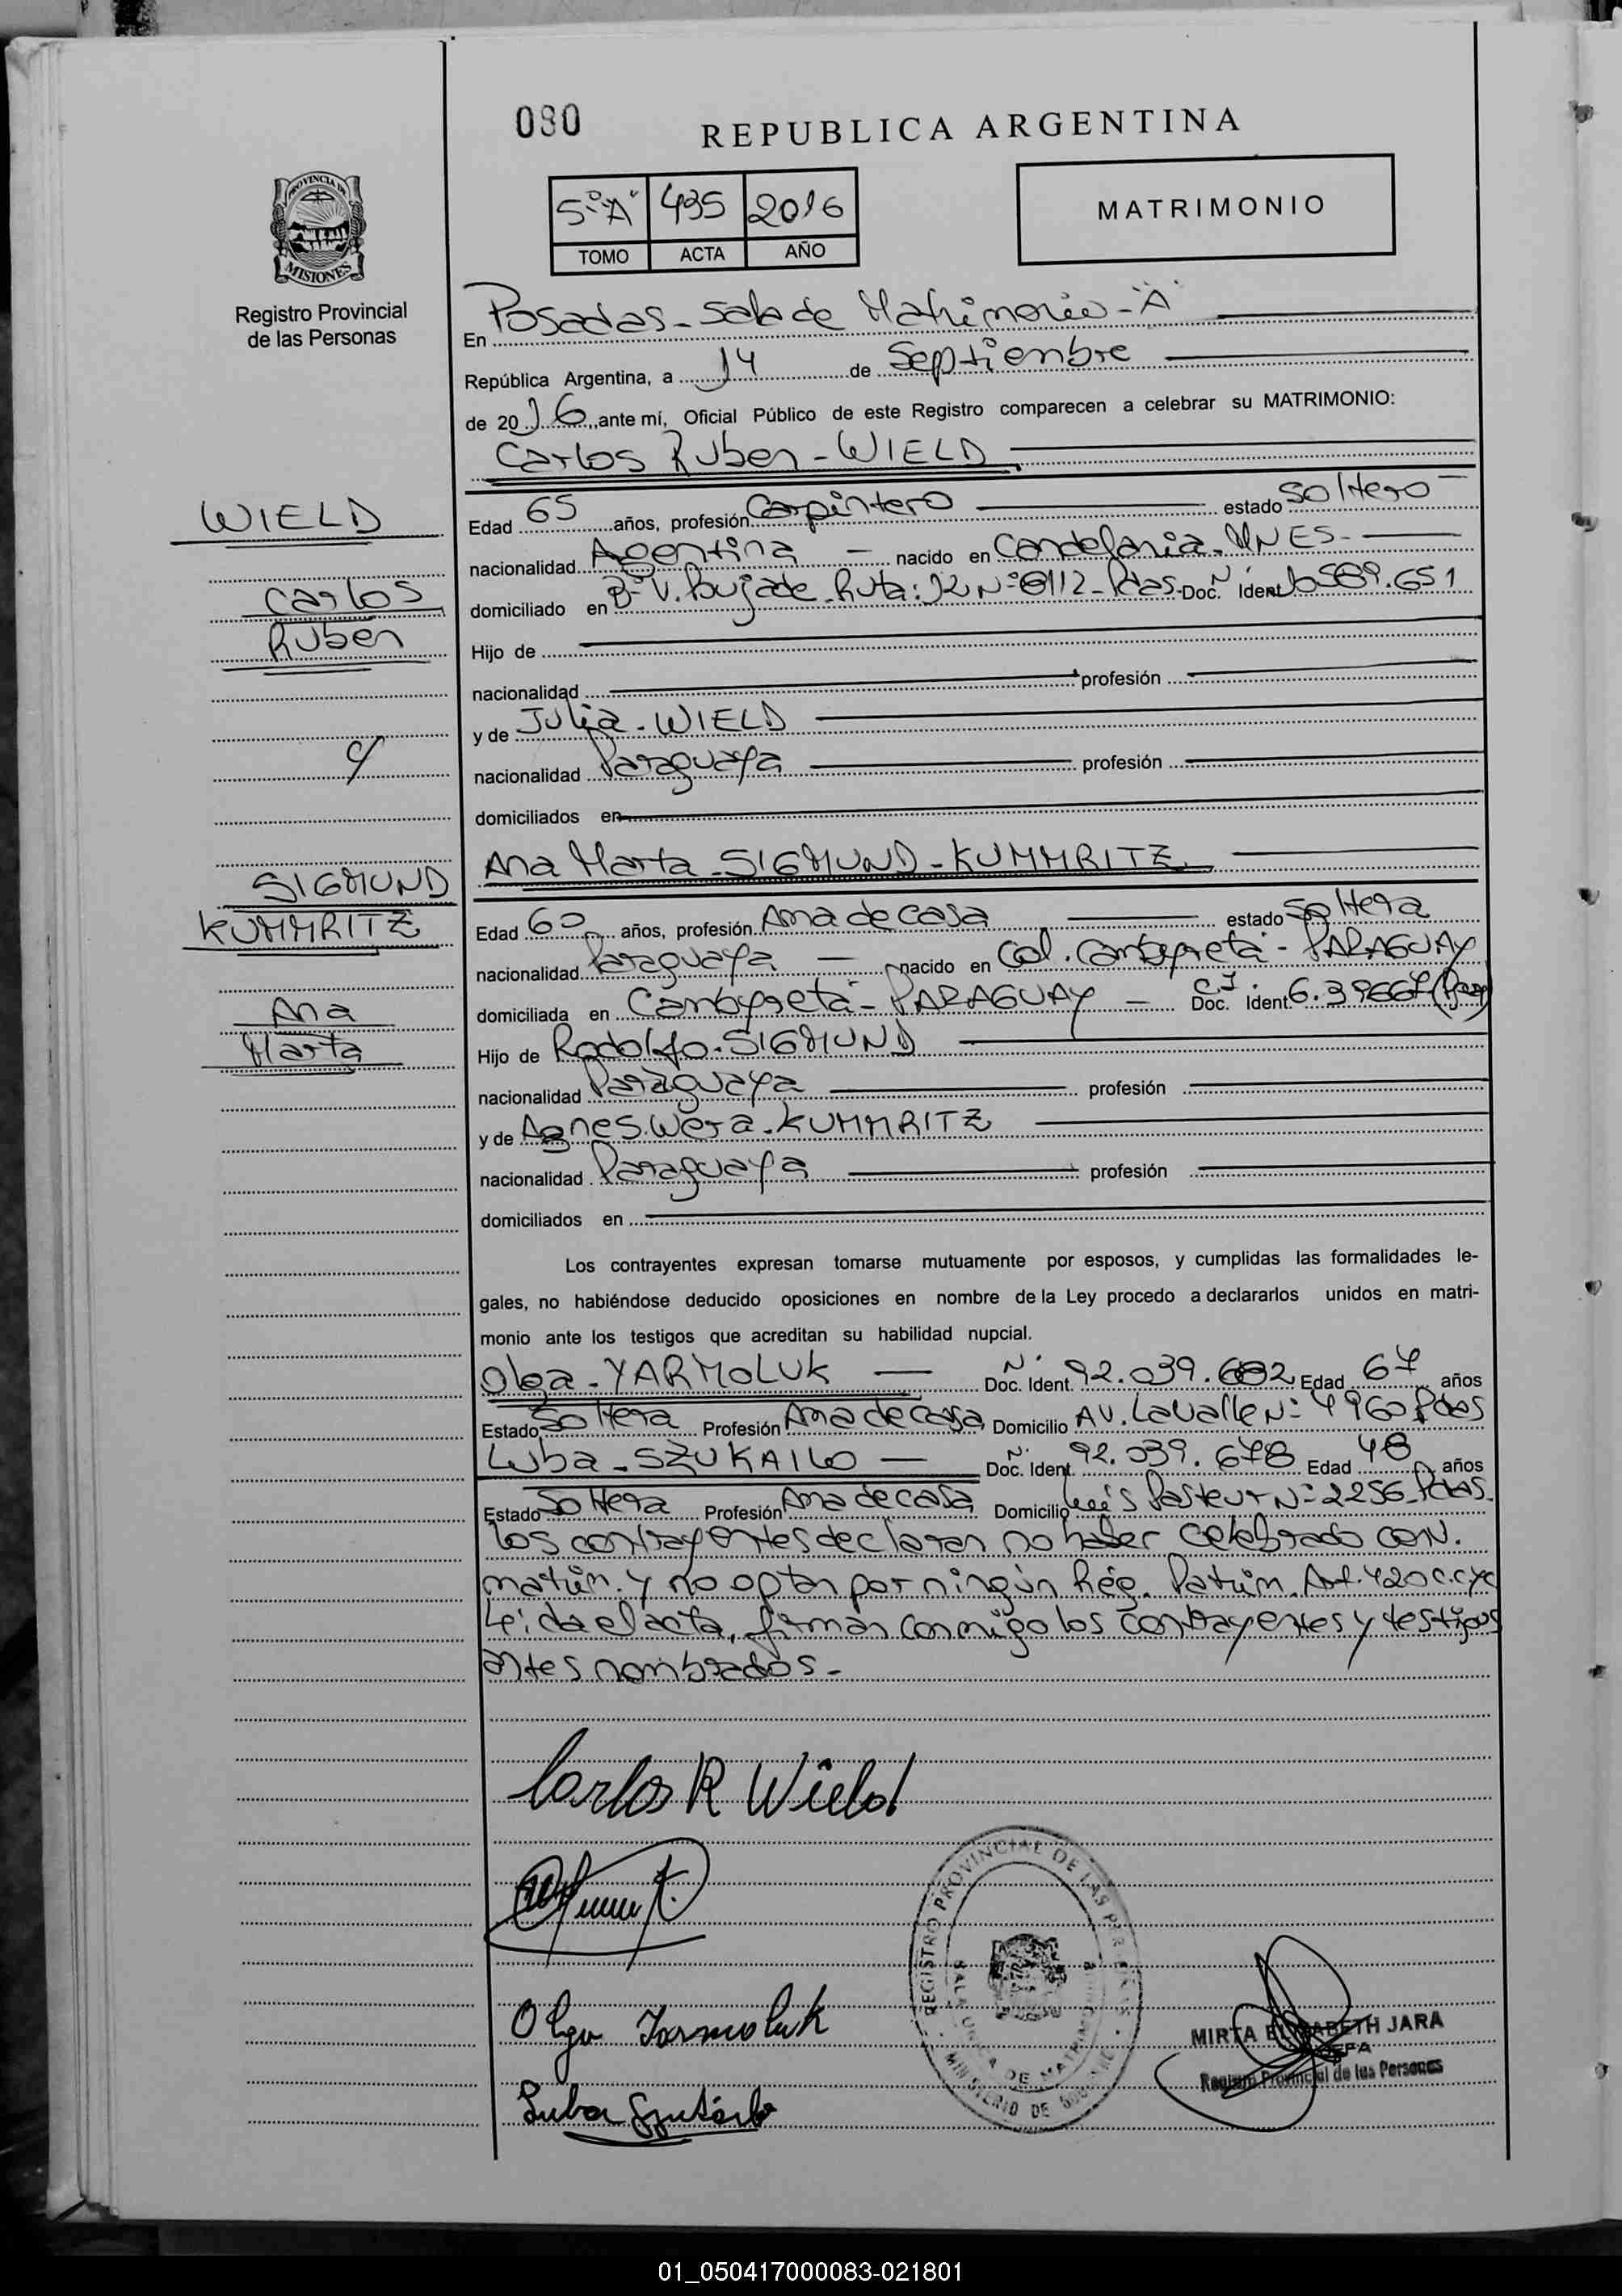 080
REPUBLICA ARGENTINA
5º"A" 495 2016
TOMO ACTA AÑO
MATRIMONIO
PROVINCIA DE MISIONES
Registro Provincial
de las Personas
En Posadas - Sala de Matrimonio - "A"
República Argentina, a 14 de Septiembre
de 2016, ante mí, Oficial Público de este Registro comparecen a celebrar su MATRIMONIO:
Carlos Ruben - WIELD
WIELD
Carlos
Ruben
Edad 65 años, profesión Carpintero estado Soltero
nacionalidad Agentina nacido en Candelaria - MNES -
domiciliado en Bº V. Bujade - Ruta: 12 Nº 6112 - Pdas - Doc. Ident. Nº 589.651
Hijo de
nacionalidad profesión
y de Julia - WIELD
nacionalidad Paraguaya profesión
domiciliados en
c/
Ana Marta - SIGMUND - KUMMRITZ
SIGMUND
KUMMRITZ
Ana
Marta
Edad 60 años, profesión Ama de casa estado Soltera
nacionalidad Paraguaya nacido en Col. Cambyreta - PARAGUAY
domiciliada en Cambyreta - PARAGUAY - C.I. Doc. Ident. 6.39667
Hijo de Rodolfo - SIGMUND
nacionalidad Paraguaya profesión
y de Agnes Wera - KUMMRITZ
nacionalidad Paraguaya profesión
domiciliados en
Los contrayentes expresan tomarse mutuamente por esposos, y cumplidas las formalidades le-
gales, no habiéndose deducido oposiciones en nombre de la Ley procedo a declararlos unidos en matri-
monio ante los testigos que acreditan su habilidad nupcial.
Olga - YARMOLUK - Nº Doc. Ident. 92.039.682 Edad 67 años
Estado Soltera Profesión Ama de casa Domicilio AV. Lavalle Nº 4960 Pdas
Luba - SZUKAILO - Nº Doc. Ident. 92.039.678 Edad 48 años
Estado Soltera Profesión Ama de casa Domicilio Luis Pasteur Nº 2256 - Pdas.
Los contrayentes declaran no haber celebrado con.
matrim. y no optan por ningún Rég. Patrim. Art. 420 C.C y C
Leída el acta, firman conmigo los contrayentes y testigos
antes nombrados.-
Carlos R Wield
Olga Jarmoluk
Luba
REGISTRO PROVINCIAL DE LAS PERSONAS
SALA UNICA DE MATRIMONIO
MINISTERIO DE GOBIERNO
MIRTA ELISABETH JARA
JEFA
Registro Provincial de las Personas
01_050417000083-021801